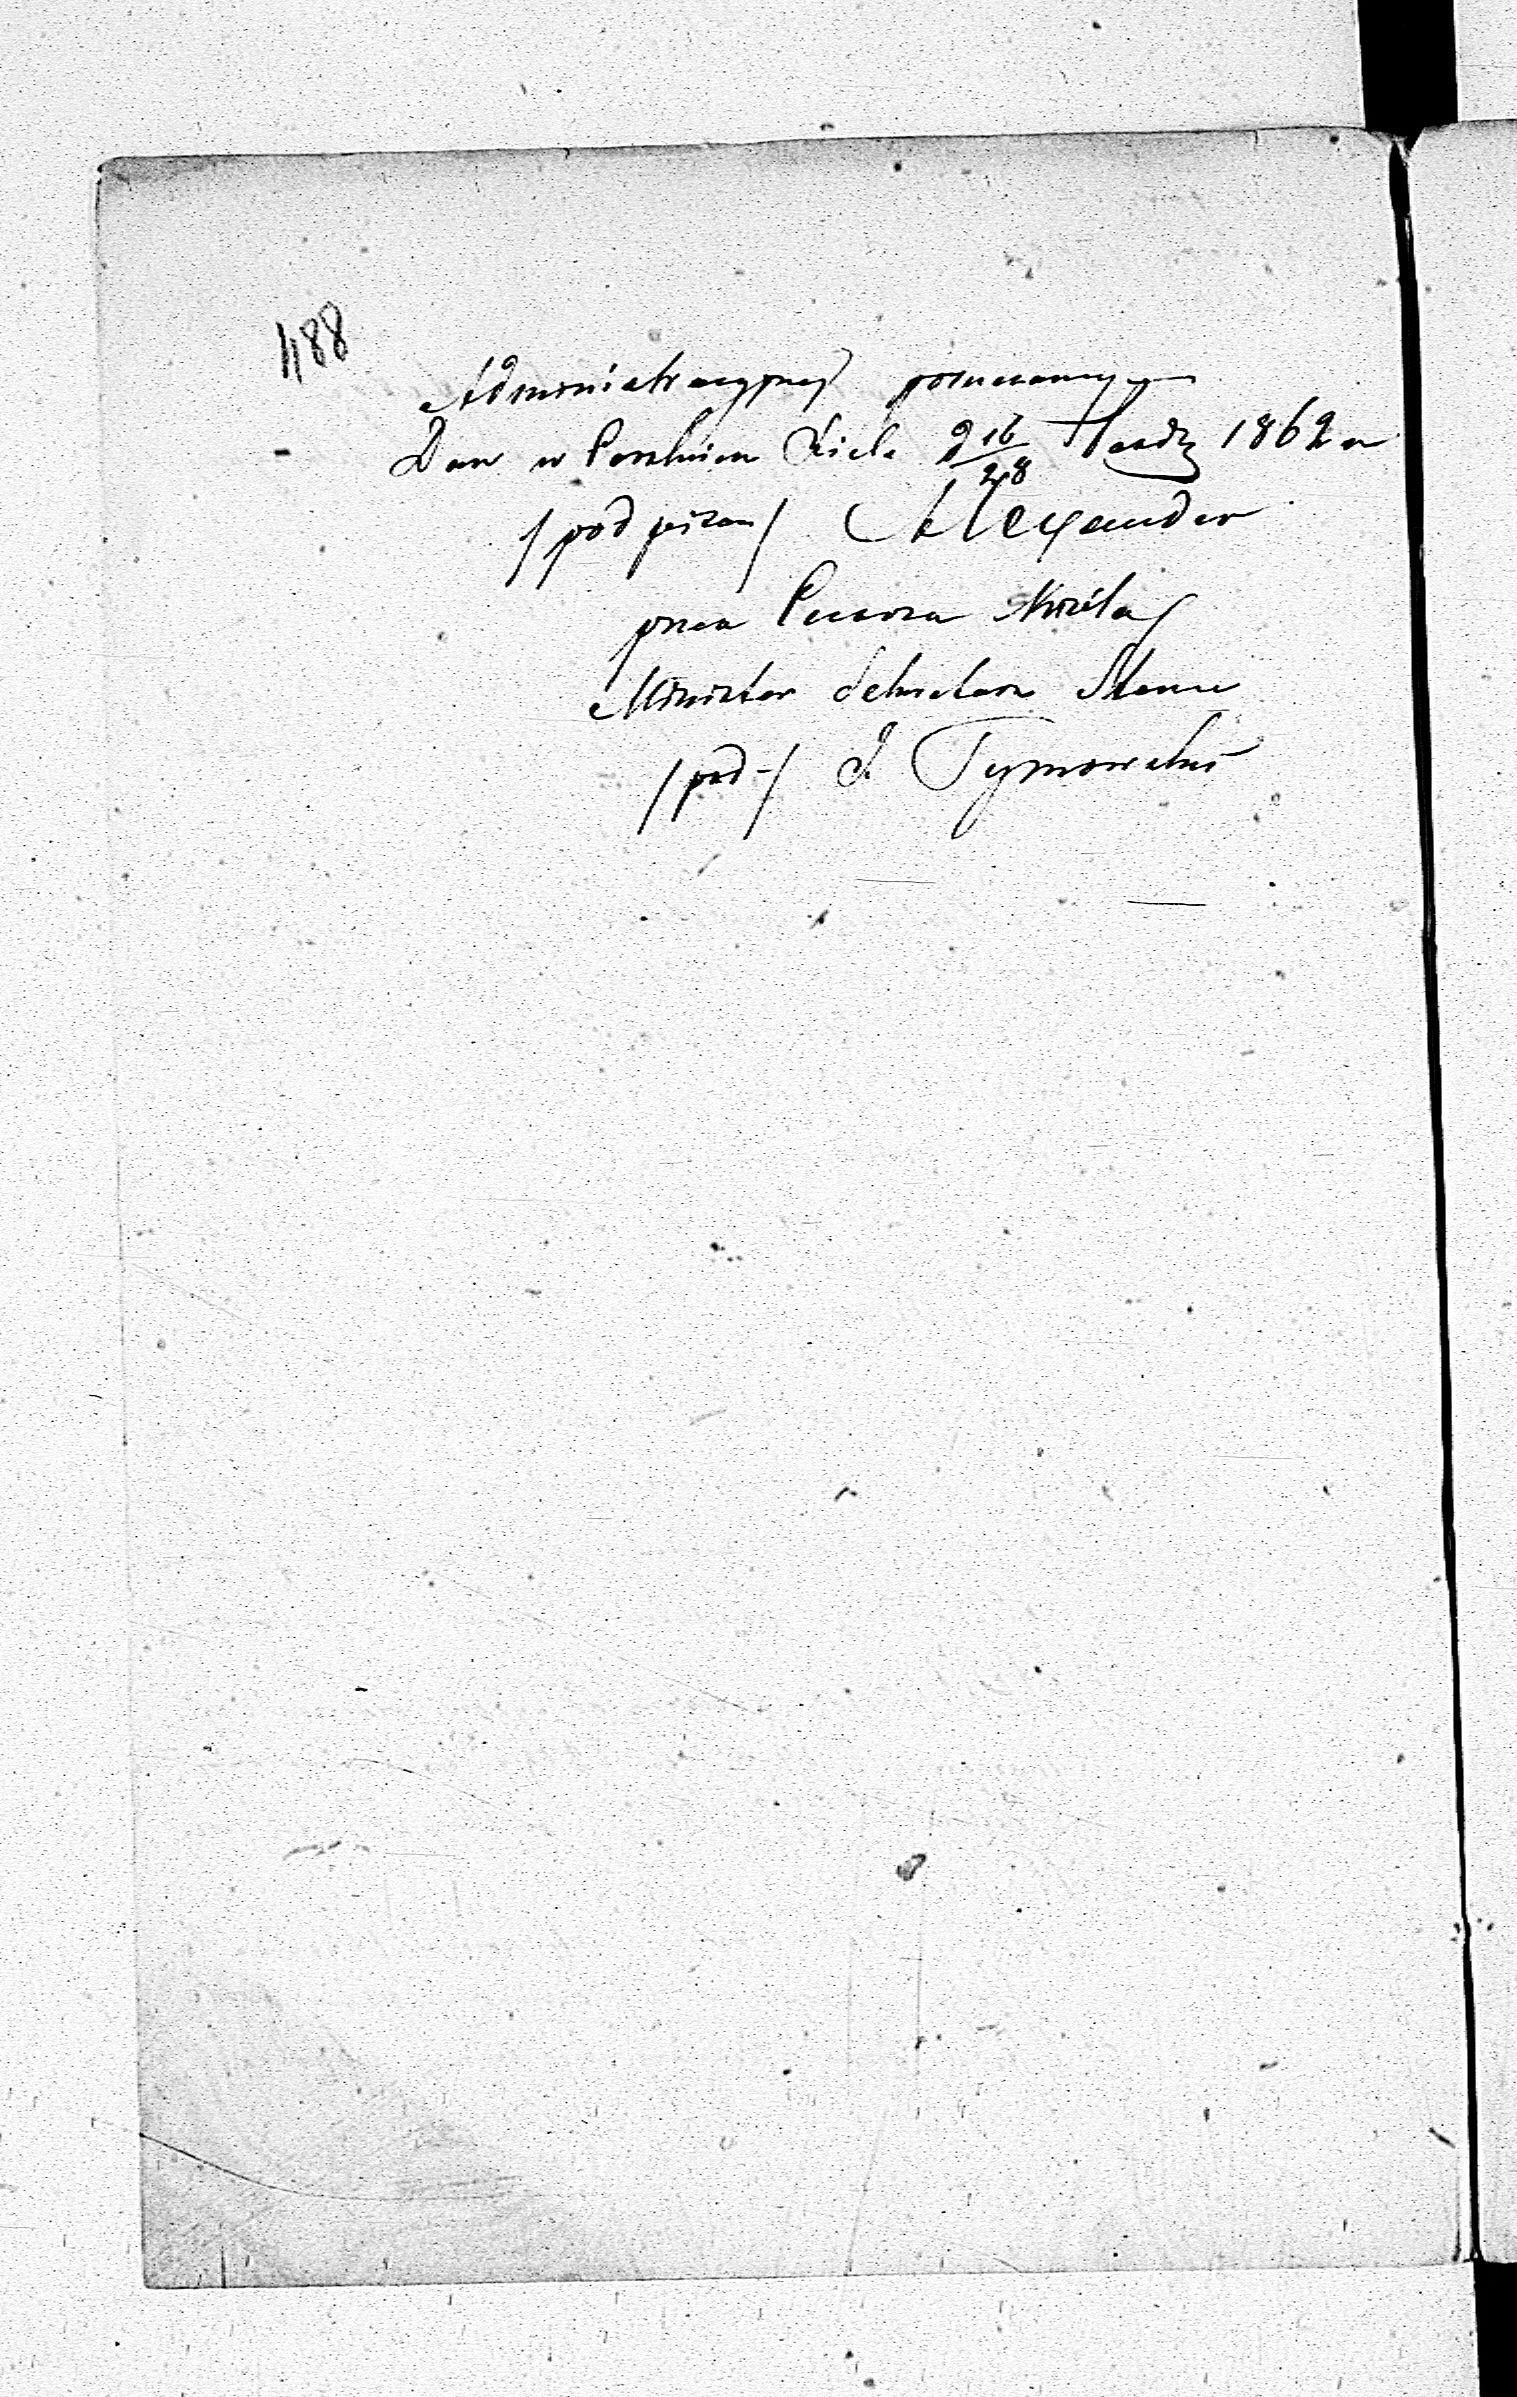 488
Administracyjnej poruczamy
Dan w Carskiem Siele d 16/28 Paźdz 1862 r
/podpisan/ Alexander
przez Cesarza Króla
Minister Sekretarz Stanu
/pod-/ J. Tymowski